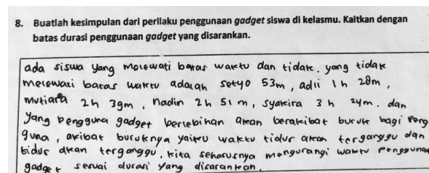 8. Buatlah kesimpulan dari perilaku penggunaan gadget siswa di kelasmu. Kaitkan dengan
batas durasi penggunaan gadget yang disarankan.
ada siswa yang melewati batas waktu dan tidak. yang tidak
melewati batas waktu adalah setyo 53m, adli 1h 28m,
mutiara 2h 39m, nadin 2h 51m, syakira 3h 24m. dan
yang pengguna gadget berlebihan akan berakibat buruk bagi peng
guna, akibat buruknya yaitu waktu tidur akan terganggu dan
tidur akan terganggu, kita seharusnya mengurangi waktu penggunaan
gadget sesuai durasi yang disarankan.